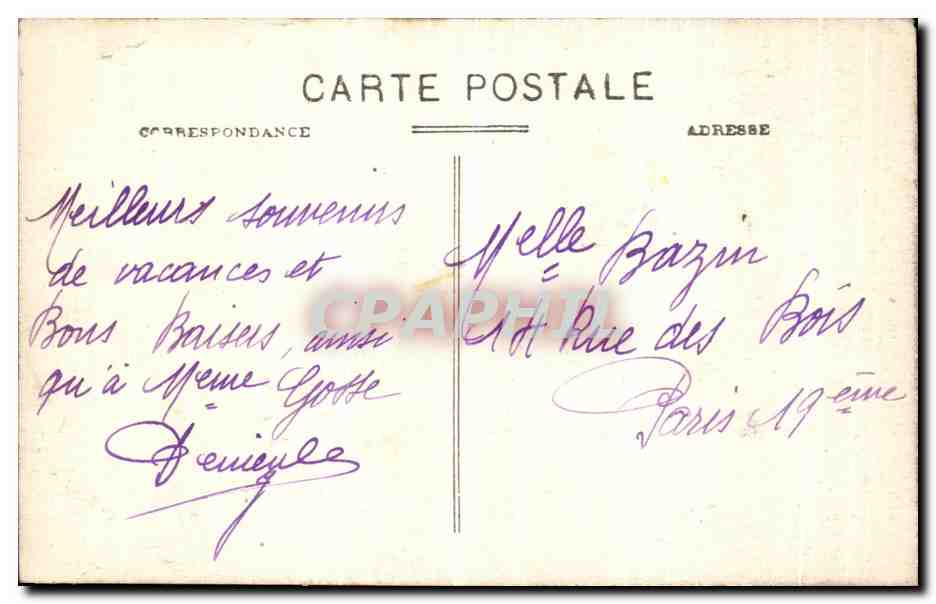 CARTE POSTALE
CORRESPONDANCE
ADRESSE
Meilleurs souvenirs
de vacances et
Bons Baisers, ainsi
qu'à Meme Gosse
Melle Bazin
14 Rue des Bois
Paris 19ème
CPAPHIL